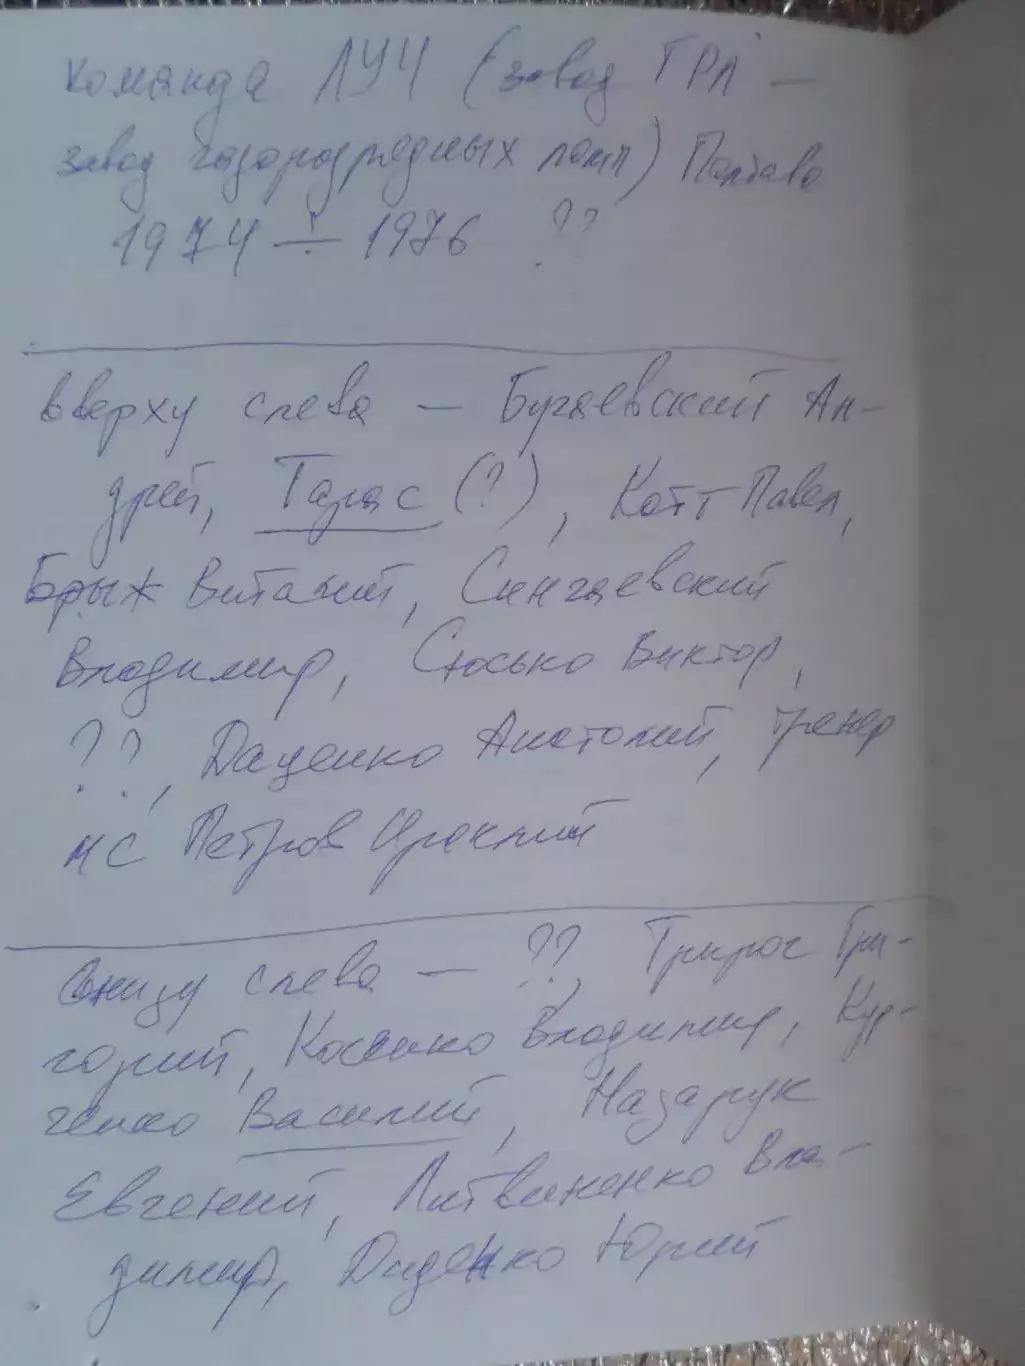 команда ЛУЧ (завод ГРЛ —
завод газоразрядных ламп) Полтава
1974 ÷ 1976 ??
вверху слева — Бугаевский Ан-
дрей, Тарас (?), Котт Павел,
Брыж Виталий, Сингаевский
Владимир, Сюсько Виктор,
??, Даценко Анатолий, тренер
МС Петров Ираклий
внизу слева — ??, Трирог Гри-
горий, Косенко Владимир, Кур-
ченко Василий, Назарук
Евгений, Литвиненко Вла-
димир, Диденко Юрий